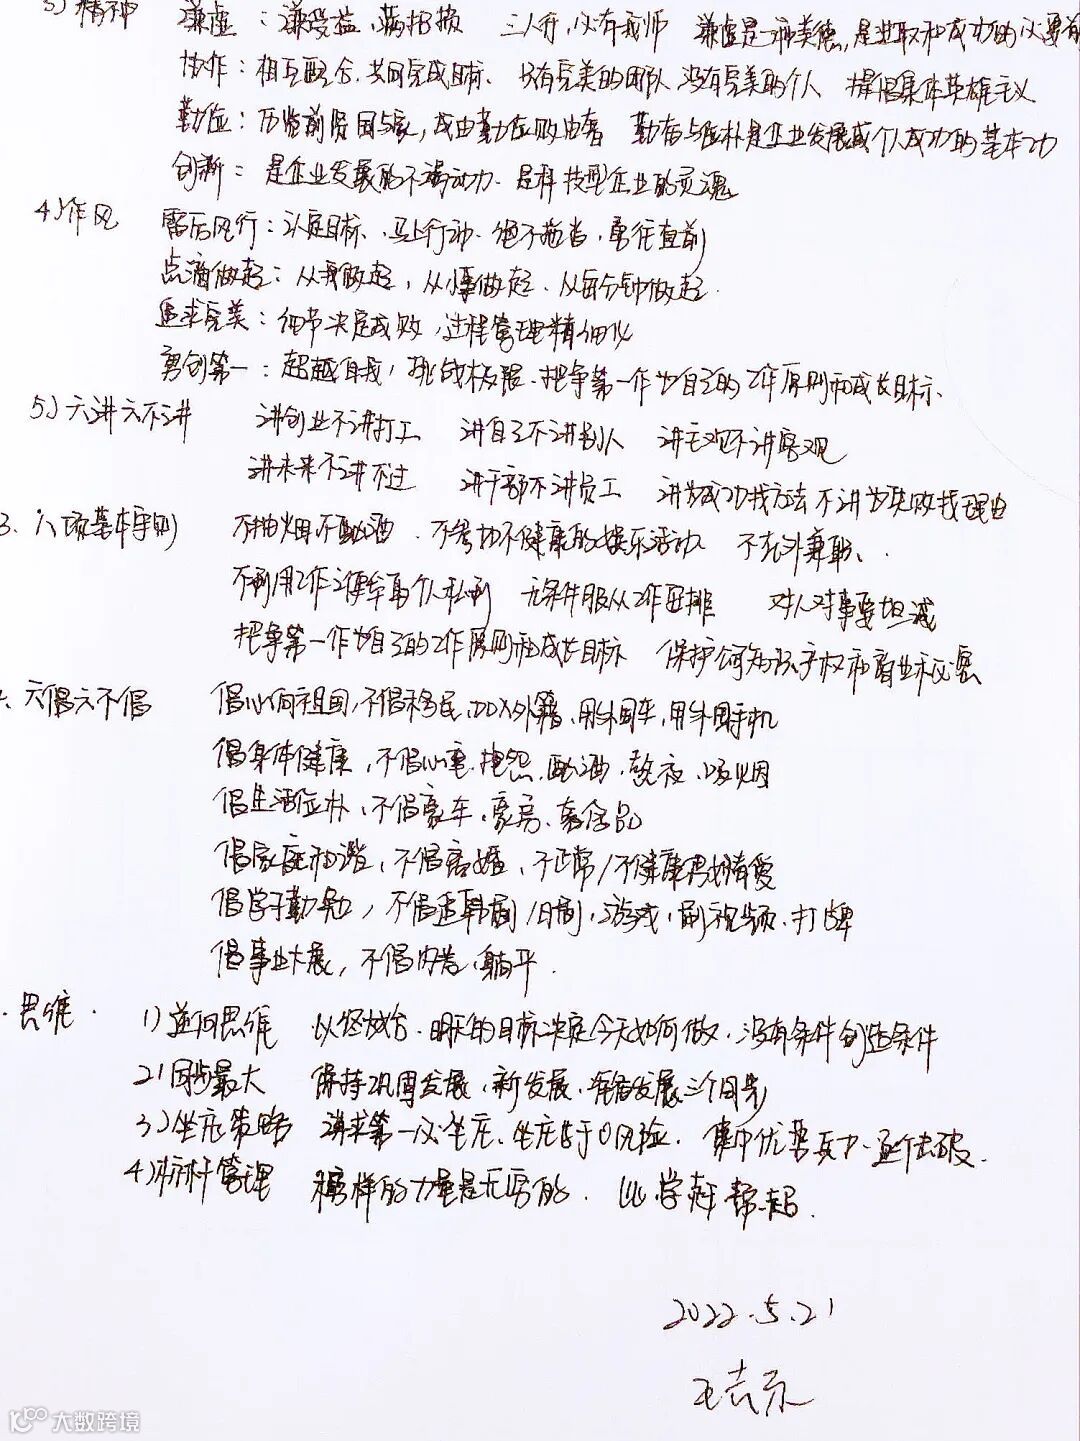 3) 精神 谦虚：谦受益,满招损 三人行,必有我师 谦虚是一种美德,是进取和成功的必要前
协作：相互配合,共同完成目标、只有完美的团队 没有完美的个人 提倡集体英雄主义
勤俭：历览前贤国与家,成由勤俭败由奢 勤奋与俭朴是企业发展或个人成功的基本功
创新：是企业发展的不竭动力、是科技型企业的灵魂
4)作风 雷厉风行：认定目标、马上行动、绝不拖沓,勇往直前
点滴做起：从我做起,从小事做起、从每分钟做起.
追求完美：细节决定成败,过程管理精细化
勇创第一：超越自我,挑战极限、把争第一作为自己的工作原则和成长目标、
5)六讲六不讲 讲创业不讲打工 讲自己不讲别人 讲主观不讲客观
讲未来不讲不过 讲干部不讲员工 讲为成功找方法 不讲为失败找理由
3、八项基本守则 不抽烟不酗酒、不参加不健康的娱乐活动 不在外兼职、
不利用工作之便牟取个人私利 无条件服从工作安排 对人对事要坦诚
把争第一作为自己的工作原则和成长目标 保护公司知识产权和商业秘密
、六倡六不倡 倡心向祖国,不倡移民、加入外籍、用外国车,用外国手机
倡身体健康,不倡心重、抱怨、酗酒、熬夜、吸烟
倡生活俭朴、不倡豪车、豪房、奢侈品
倡家庭和谐、不倡离婚、不正常/不健康男婚情爱
倡学习勤勉,不倡追韩剧/日剧、游戏、刷视频、打牌
倡事业大展,不倡内卷、躺平.
、思维 1)逆向思维 以终为始、明天的目标决定今天如何做、没有条件创造条件
2)同步最大 保持巩固发展、新发展、储备发展三个同步
3)坐庄策略 讲求第一必坐庄、坐庄等于0风险、集中优势兵力、逐个击破.
4)标杆管理 榜样的力量是无穷的、比学赶帮超.
2022.5.21
大数跨境